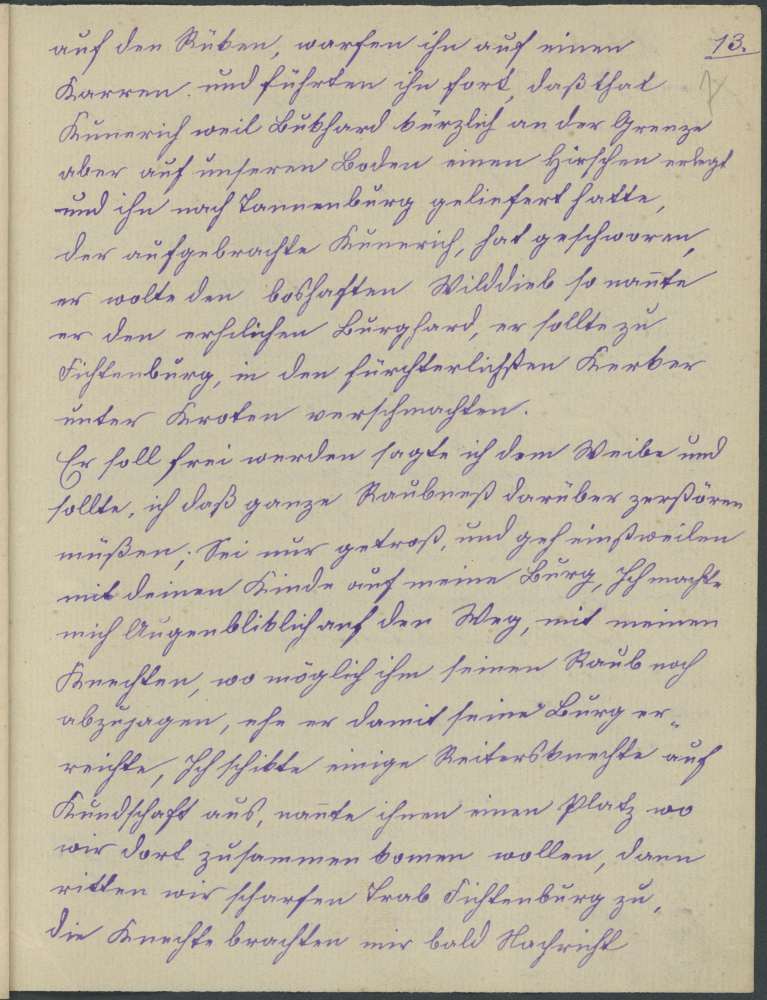 13.
7
auf den Rüken, warfen ihn auf einen
Karren und führten ihn fort, daß that
Kunerich weil Bukhard kürzlich an der Grenze
aber auf unseren Boden einen Hirschen erlegt
und ihn nach Tannenburg geliefert hatte,
der aufgebrachte Kunerich, hat geschworen,
er wolte den boshaften Wilddieb so nan̄te
er den erhrlichen Burghard, er sollte zu
Fichtenburg, in den fürchterlichsten Kerker
unter Kroten verschmachten.
Er soll frei werden sagte ich dem Weibe und
sollte, ich daß ganze Raubneß darüber zerstören
müßen; Sei nur getrost, und geh einstweilen
mit deinen Kinde auf meine Burg, Ich machte
mich Augenbliklich auf den Weg, mit meinen
Knechten, wo möglich ihm seinen Raub noch
abzujagen, ehe er damit seine Burg er„
reichte, Ich schikte einige Reitersknechte auf
Kundschaft aus, nan̄te ihnen einen Platz wo
wir dort zusammen komen wollen, dann
ritten wir scharfen Trab Fichtenburg zu,
die Knechte brachten mir bald Nachricht